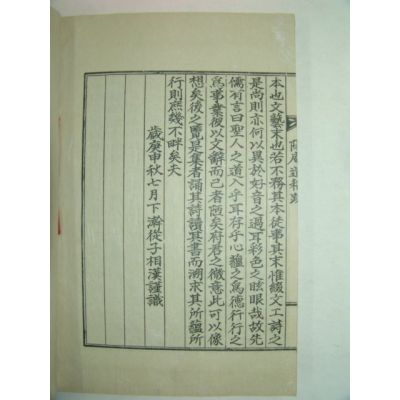 本也文藝末也苟不務其本徒事其末惟綴文工詩之
是尚則亦何以異於好音之過耳彩色之眩眼哉故先
儒有言曰聖人之道入乎耳存乎心蘊之爲德行行之
爲事業彼以文辭而已者陋矣府君之微意此可以像
想矣後之覽是集者誦其詩讀其書而溯求其所蘊所
行則庶幾不畔矣夫
歲庚申秋七月下澣從子相漢謹識